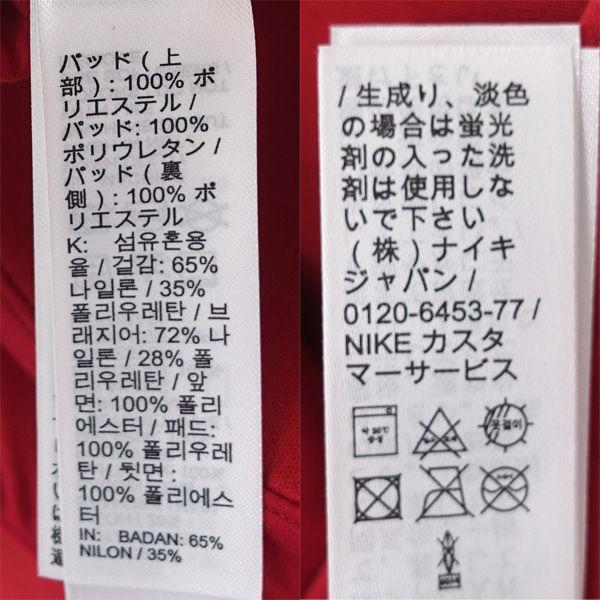 パッド ( 上
部 ) : 100% ポ
リエステル /
パッド: 100%
ポリウレタン /
パッド ( 裏
側 ) : 100% ポ
リエステル
K: 섬유혼용
율 / 겉감: 65%
나일론 / 35%
폴리우레탄 / 브
래지어: 72% 나
일론 / 28% 폴
리우레탄 / 앞
면: 100% 폴리
에스터 / 패드:
100% 폴리우레
탄 / 뒷면 :
100% 폴리에스
터
IN: BADAN: 65%
NILON / 35%
/ 生成り、淡色
の場合は蛍光
剤の入った洗
剤は使用しな
いで下さい
( 株 ) ナイキ
ジャパン /
0120-6453-77 /
NIKE カスタ
マーサービス
약 30℃
중성
옷걸이